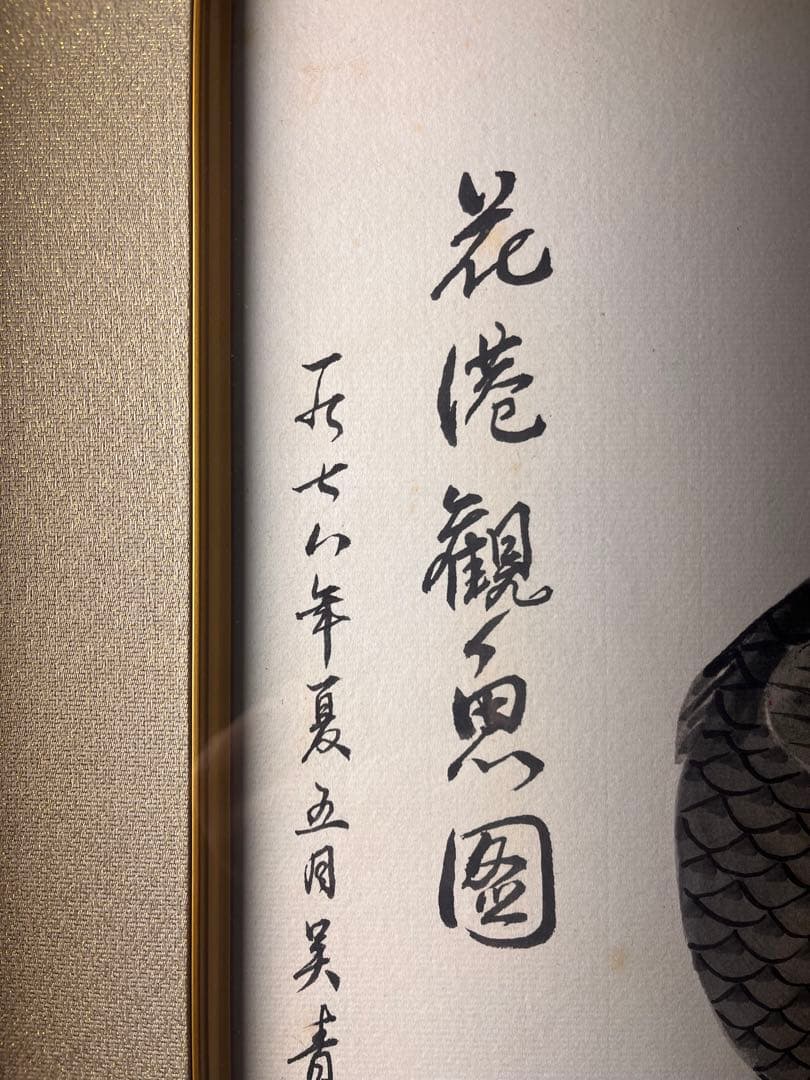 花港觀魚圖
一九七八年夏五月吴青